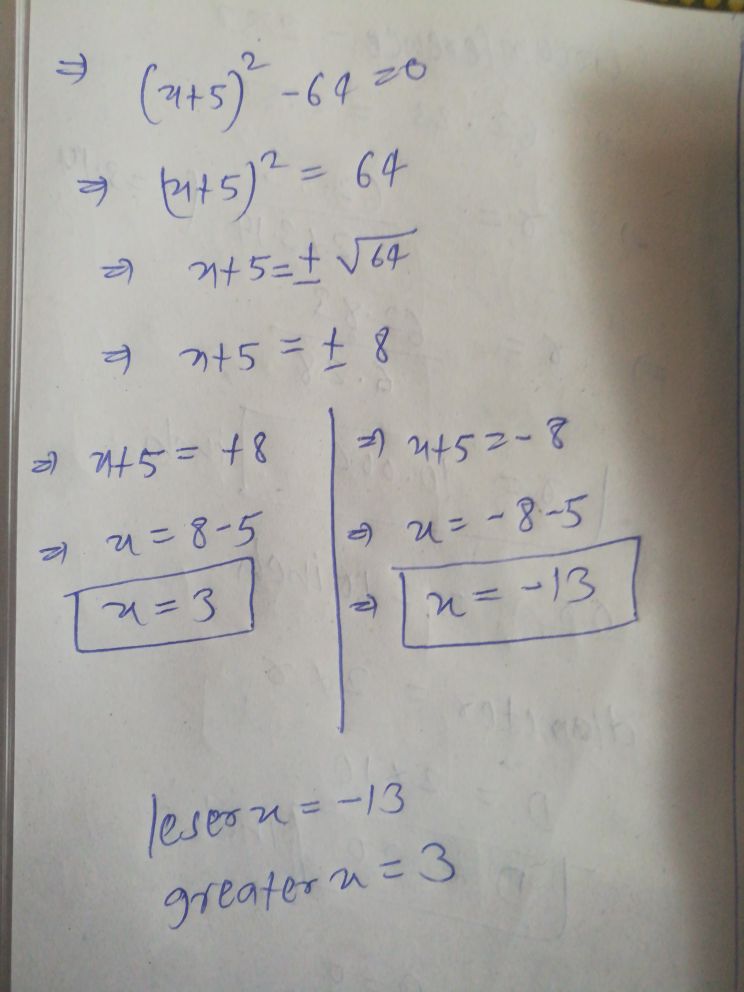 ⇒ (x+5)² - 64 = 0
⇒ (x+5)² = 64
⇒ x+5 = ± √64
⇒ x+5 = ± 8
⇒ x+5 = +8
⇒ x = 8-5
x = 3
⇒ x+5 = -8
⇒ x = -8-5
⇒ x = -13
leser x = -13
greater x = 3